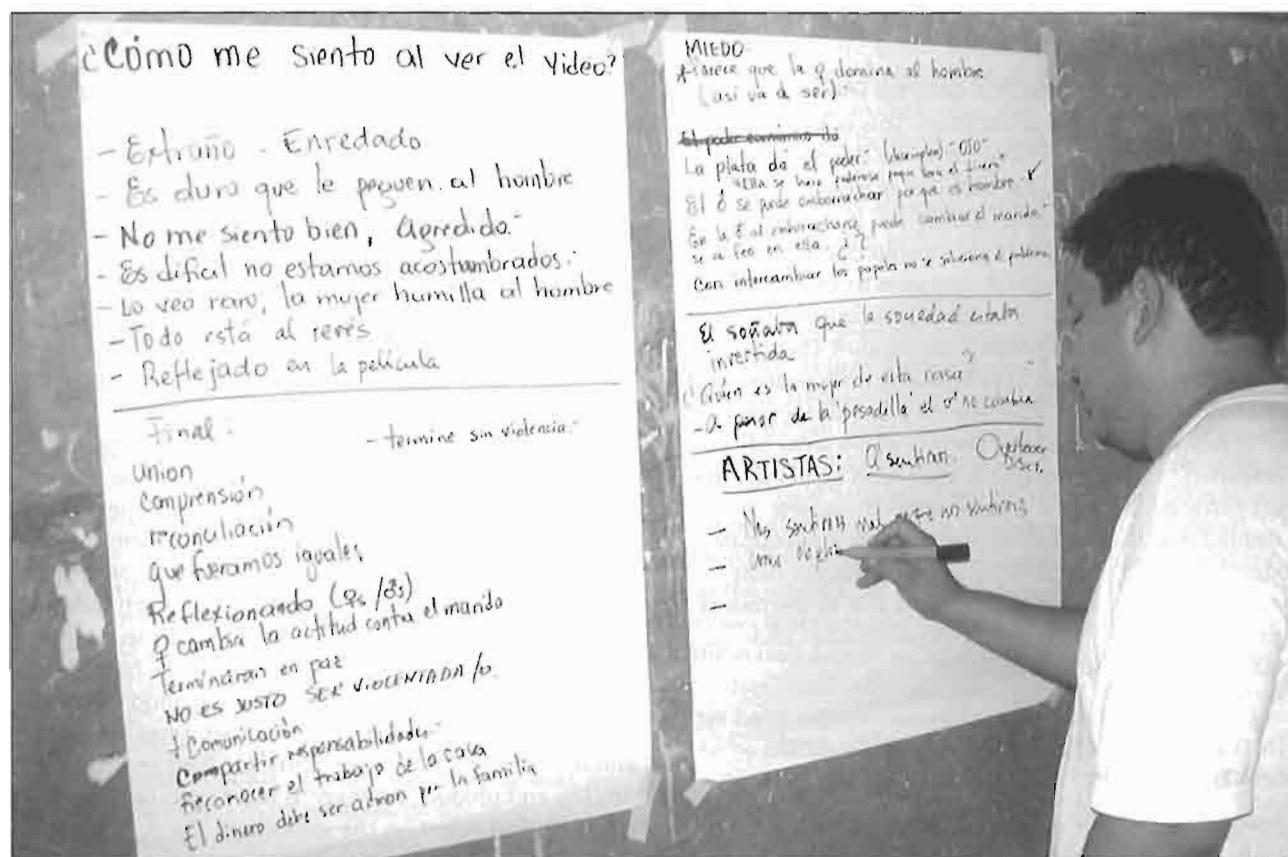 ¿Cómo me siento al ver el video?
- Extraño - Enredado
- Es duro que le peguen al hombre
- No me siento bien, Agredido.-
- Es dificil no estamos acostumbrados.-
- Lo veo raro, la mujer humilla al hombre
- Todo está al revés
- Reflejado en la película
Final -
- termine sin violencia.-
union
comprensión
reconciliación
que fueramos iguales
Reflexionando (♀s/♂s)
♀ cambia la actitud contra el marido
Terminaran en paz
NO ES JUSTO SER VIOLENTADA/o
+ Comunicación
Compartir responsabilidades.-
Reconocer el trabajo de la casa
El dinero debe ser admon por la familia
MIEDO
Parece que la ♀ domina al hombre
(asi va a ser)
El poder economico da
La plata da el poder (desempleo) - OJO -
Ella se hace poderosa
El ♂ se puede emborrachar porque es hombre
al emborracharse puede cambiar el mundo.-
se ve feo en ella. ¿?
Con intercambiar los papeles no se soluciona el problema
El soñaba que la sociedad estaba
invertida
¿Quien es la mujer de esta casa?
- A pesar de la 'pesadilla' el ♂ no cambia
ARTISTAS:
- Nos sentimos mal
-
-